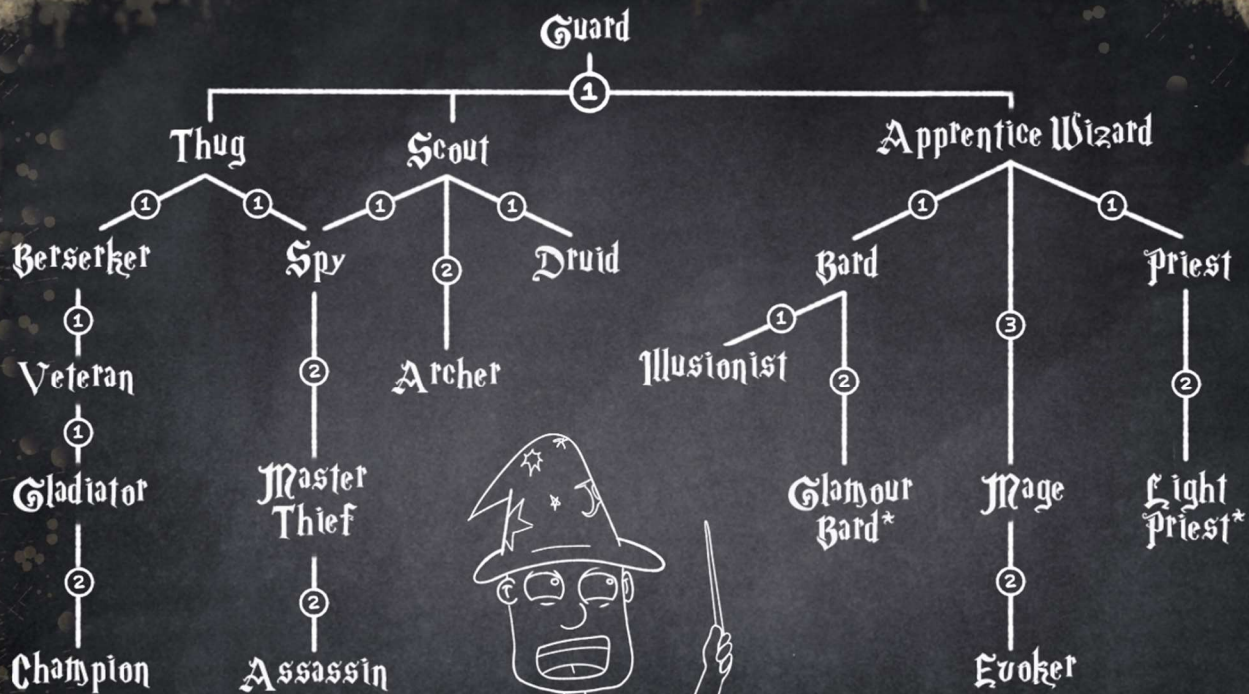 Guard
1
Thug Scout Apprentice Wizard
1 1 1 1 1 1
Berserker Spy Druid Bard Priest
2
1 1 3
Veteran 2 Archer Illusionist 2 2
1
Gladiator Master Thief Glamour Bard* Mage Light Priest*
2 2 2
Champion Assassin Evoker